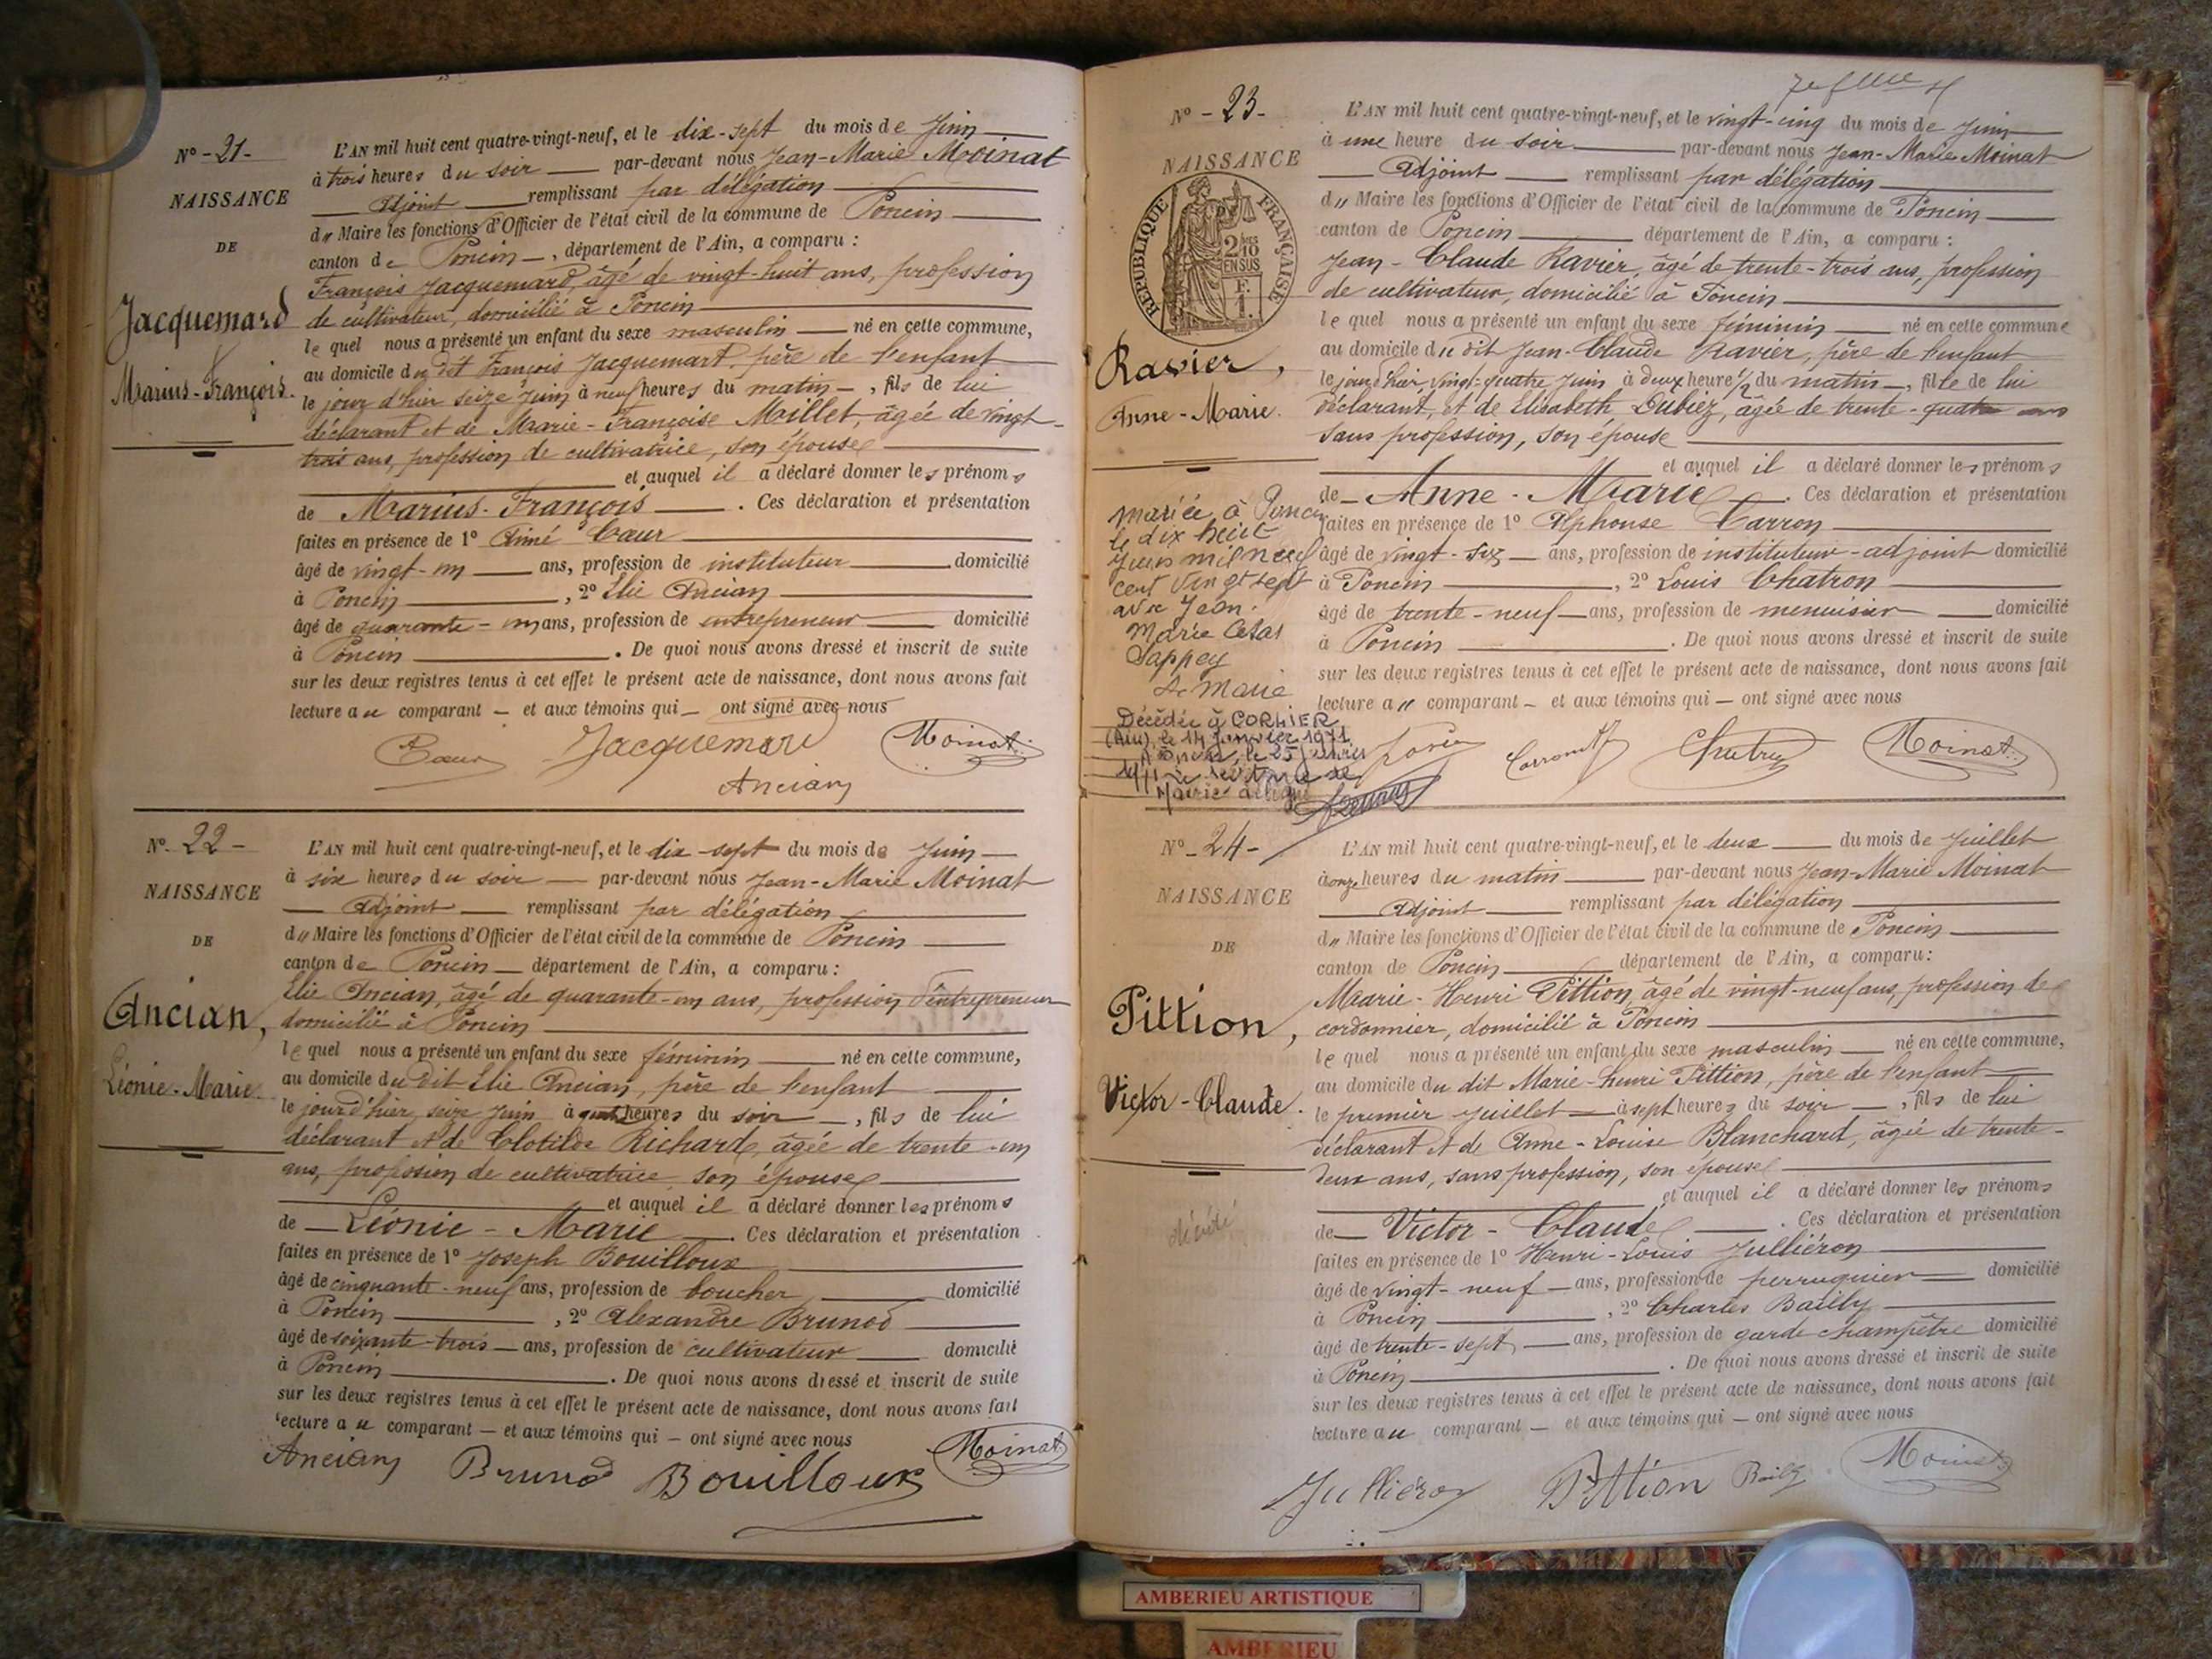 N° - 21 -
NAISSANCE
DE
Jacquemard
Marius-François.
L'AN mil huit cent quatre-vingt-neuf, et le dix-sept du mois de Juin
à trois heures du soir par-devant nous Jean-Marie Moinat
Adjoint remplissant par délégation
d" Maire les fonctions d'Officier de l'état civil de la commune de Poncin
canton de Poncin, département de l'Ain, a comparu :
François Jacquemard, âgé de vingt-huit ans, profession
de cultivateur, domicilié à Poncin
lequel nous a présenté un enfant du sexe masculin né en cette commune,
au domicile du dit François Jacquemart, père de l'enfant
le jour d'hier seize Juin à neuf heures du matin, fils de lui
déclarant et de Marie-Françoise Maillet, âgée de vingt-
trois ans, profession de cultivatrice, son épouse
et auquel il a déclaré donner les prénoms
de Marius-François. Ces déclaration et présentation
faites en présence de 1° Aimé Cœur
âgé de vingt-un ans, profession de instituteur domicilié
à Poncin, 2° Elie Ancian
âgé de quarante-un ans, profession de entrepreneur domicilié
à Poncin. De quoi nous avons dressé et inscrit de suite
sur les deux registres tenus à cet effet le présent acte de naissance, dont nous avons fait
lecture au comparant - et aux témoins qui - ont signé avec nous
Cœur Jacquemard Moinat
Ancian
N° - 22 -
NAISSANCE
DE
Ancian,
Léonie-Marie.
L'AN mil huit cent quatre-vingt-neuf, et le dix-sept du mois de Juin
à six heures du soir par-devant nous Jean-Marie Moinat
Adjoint remplissant par délégation
d" Maire les fonctions d'Officier de l'état civil de la commune de Poncin
canton de Poncin département de l'Ain, a comparu :
Elie Ancian, âgé de quarante-un ans, profession d'entrepreneur
domicilié à Poncin
lequel nous a présenté un enfant du sexe féminin né en cette commune,
au domicile du dit Elie Ancian, père de l'enfant
le jour d'hier, seize Juin à heures du soir, fils de lui
déclarant et de Clotilde Richard, âgée de trente-un
ans, profession de cultivatrice son épouse
et auquel il a déclaré donner les prénoms
de Léonie-Marie. Ces déclaration et présentation
faites en présence de 1° Joseph Bouilloux
âgé de cinquante-neuf ans, profession de boucher domicilié
à Poncin, 2° Alexandre Brunod
âgé de soixante-trois ans, profession de cultivateur domicilié
à Poncin. De quoi nous avons dressé et inscrit de suite
sur les deux registres tenus à cet effet le présent acte de naissance, dont nous avons fait
lecture au comparant - et aux témoins qui - ont signé avec nous
Ancian Brunod Bouilloux Moinat
N° - 23 -
NAISSANCE
REPUBLIQUE FRANÇAISE
2/10 EN SUS
F. 1.
Ravier,
Anne-Marie.
mariée à Poncin
le dix huit
juin mil neuf
cent vingt sept
avec Jean-
Marie César
Sappey
Le Maire
Décédée à CORLIER
(Ain), le 14 Janvier 1971
L'AN mil huit cent quatre-vingt-neuf, et le vingt-cinq du mois de Juin
à une heure du soir par-devant nous Jean-Marie Moinat
Adjoint remplissant par délégation
d" Maire les fonctions d'Officier de l'état civil de la commune de Poncin
canton de Poncin département de l'Ain, a comparu :
Jean-Claude Ravier, âgé de trente-trois ans, profession
de cultivateur, domicilié à Poncin
lequel nous a présenté un enfant du sexe féminin né en cette commune
au domicile du dit Jean-Claude Ravier, père de l'enfant
le jour d'hier, vingt-quatre Juin à deux heures 1/2 du matin, fille de lui
déclarant, et de Elisabeth Dubiez, âgée de trente-quatre ans
sans profession, son épouse
et auquel il a déclaré donner les prénoms
de Anne-Marie. Ces déclaration et présentation
faites en présence de 1° Alphonse Carron
âgé de vingt-six ans, profession de instituteur-adjoint domicilié
à Poncin, 2° Louis Chatron
âgé de trente-neuf ans, profession de menuisier domicilié
à Poncin. De quoi nous avons dressé et inscrit de suite
sur les deux registres tenus à cet effet le présent acte de naissance, dont nous avons fait
lecture a" comparant - et aux témoins qui - ont signé avec nous
Moinat
N° - 24 -
NAISSANCE
DE
Pittion,
Victor-Claude.
décédé
L'AN mil huit cent quatre-vingt-neuf, et le deux du mois de Juillet
à onze heures du matin par-devant nous Jean-Marie Moinat
Adjoint remplissant par délégation
d" Maire les fonctions d'Officier de l'état civil de la commune de Poncin
canton de Poncin département de l'Ain, a comparu :
Marie-Henri Pittion, âgé de vingt-neuf ans, profession de
cordonnier, domicilié à Poncin
lequel nous a présenté un enfant du sexe masculin né en cette commune,
au domicile du dit Marie-henri Pittion, père de l'enfant
le premier Juillet à sept heures du soir, fils de lui
déclarant et de Anne-Louise Blanchard, âgée de trente-
deux ans, sans profession, son épouse
et auquel il a déclaré donner les prénoms
de Victor-Claude. Ces déclaration et présentation
faites en présence de 1° Henri-Louis Julliéron
âgé de vingt-neuf ans, profession de perruquier domicilié
à Poncin, 2° Charles Bailly
âgé de trente-sept ans, profession de garde champêtre domicilié
à Poncin. De quoi nous avons dressé et inscrit de suite
sur les deux registres tenus à cet effet le présent acte de naissance, dont nous avons fait
lecture au comparant - et aux témoins qui - ont signé avec nous
Julliéron Pittion Bailly Moinat
AMBERIEU ARTISTIQUE
AMBERIEU